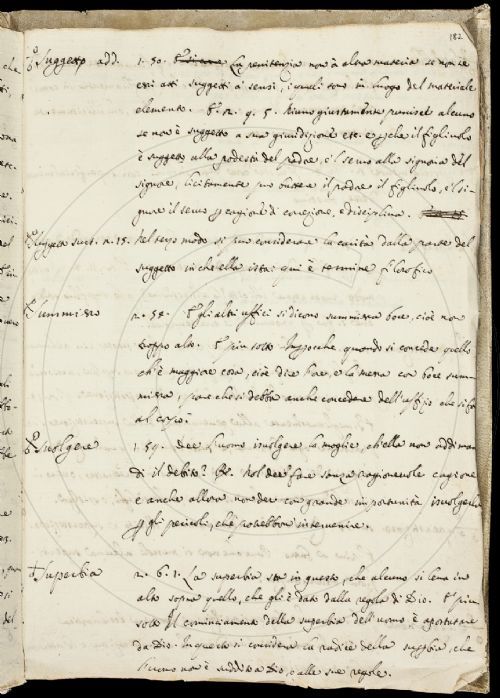 182
Suggetto add. 1. 50. La penitenzia non à altra materia se non se
essi atti suggetti a' sensi, i quali sono in luogo del materiale
elemento. E n. q. 5. Niuno giustamente punisce alcuno
se non è suggetto a sua giuridizione etc. e perche il figliuolo
è suggetto alla podestà del padre, e 'l servo alla signoria del
signore, licitamente puo battere il padre il figliuolo, e 'l si-
gnore il servo per cagione di correzione, e disciplina.
Suggetto sust. n. 15. Nel terzo modo si può considerare la carità dalla parte del
suggetto in che ella ista: qui è termine filosofico
Summisso n. 58. E gli altri uffici si dicono summissa boce, cioè non
troppo alto. E più sotto. Imperocche, quando si concede quello
ch'è maggiore cosa, cioè dire l'ore, e la messa con boce summ-
missa, pare che si debba anche concedere dell'uffizio che si fa
al corpo.
Svolgere 1. 59. Dee l'uomo isvolgere la moglie, ch'ella non addiman-
di il debito? R. Nol dee fare sanza ragionevole cagione
e anche allora non dee con grande importunità isvolgerla
per gli pericoli, che potrebbon intervenire.
Superbia n. 6. 1. La superbia sta in questo, che alcuno si leva in
alto sopra quello, che gli è dato dalla regola di Dio. E più
sotto Il cominciamento della superbia dell'uomo è apostatare
da Dio. In questo si considera la radice della superbia, che
l'uomo non è suddito a Dio, e alle sue regole.